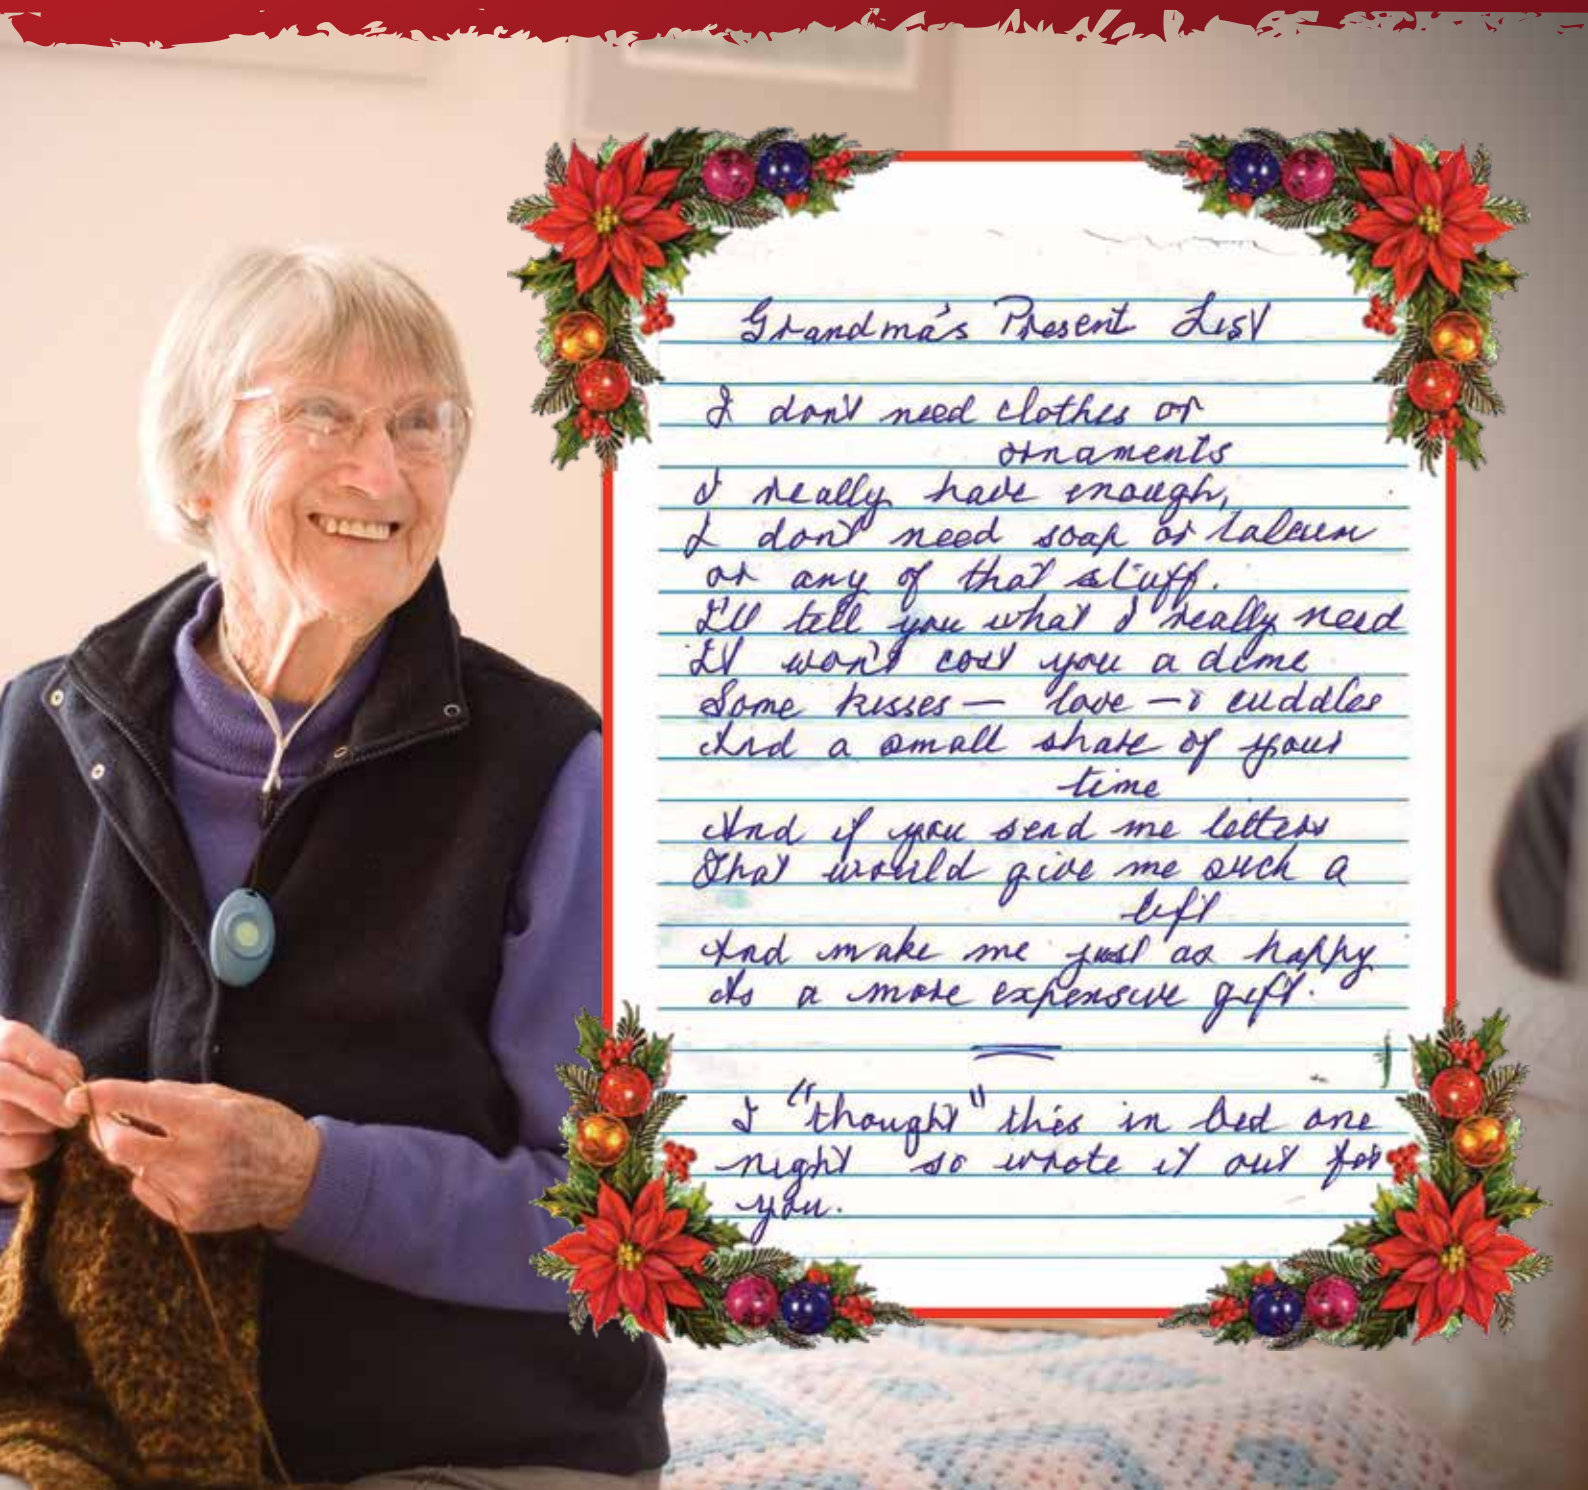 Grandma's Present List
I don't need clothes or
ornaments
I really have enough,
I don't need soap or talcum
or any of that stuff.
I'll tell you what I really need
It won't cost you a dime
Some kisses — love — & cuddles
And a small share of your
time
And if you send me letters
That would give me such a
lift
And make me just as happy
As a more expensive gift.
I "thought" this in bed one
night so wrote it out for
you.